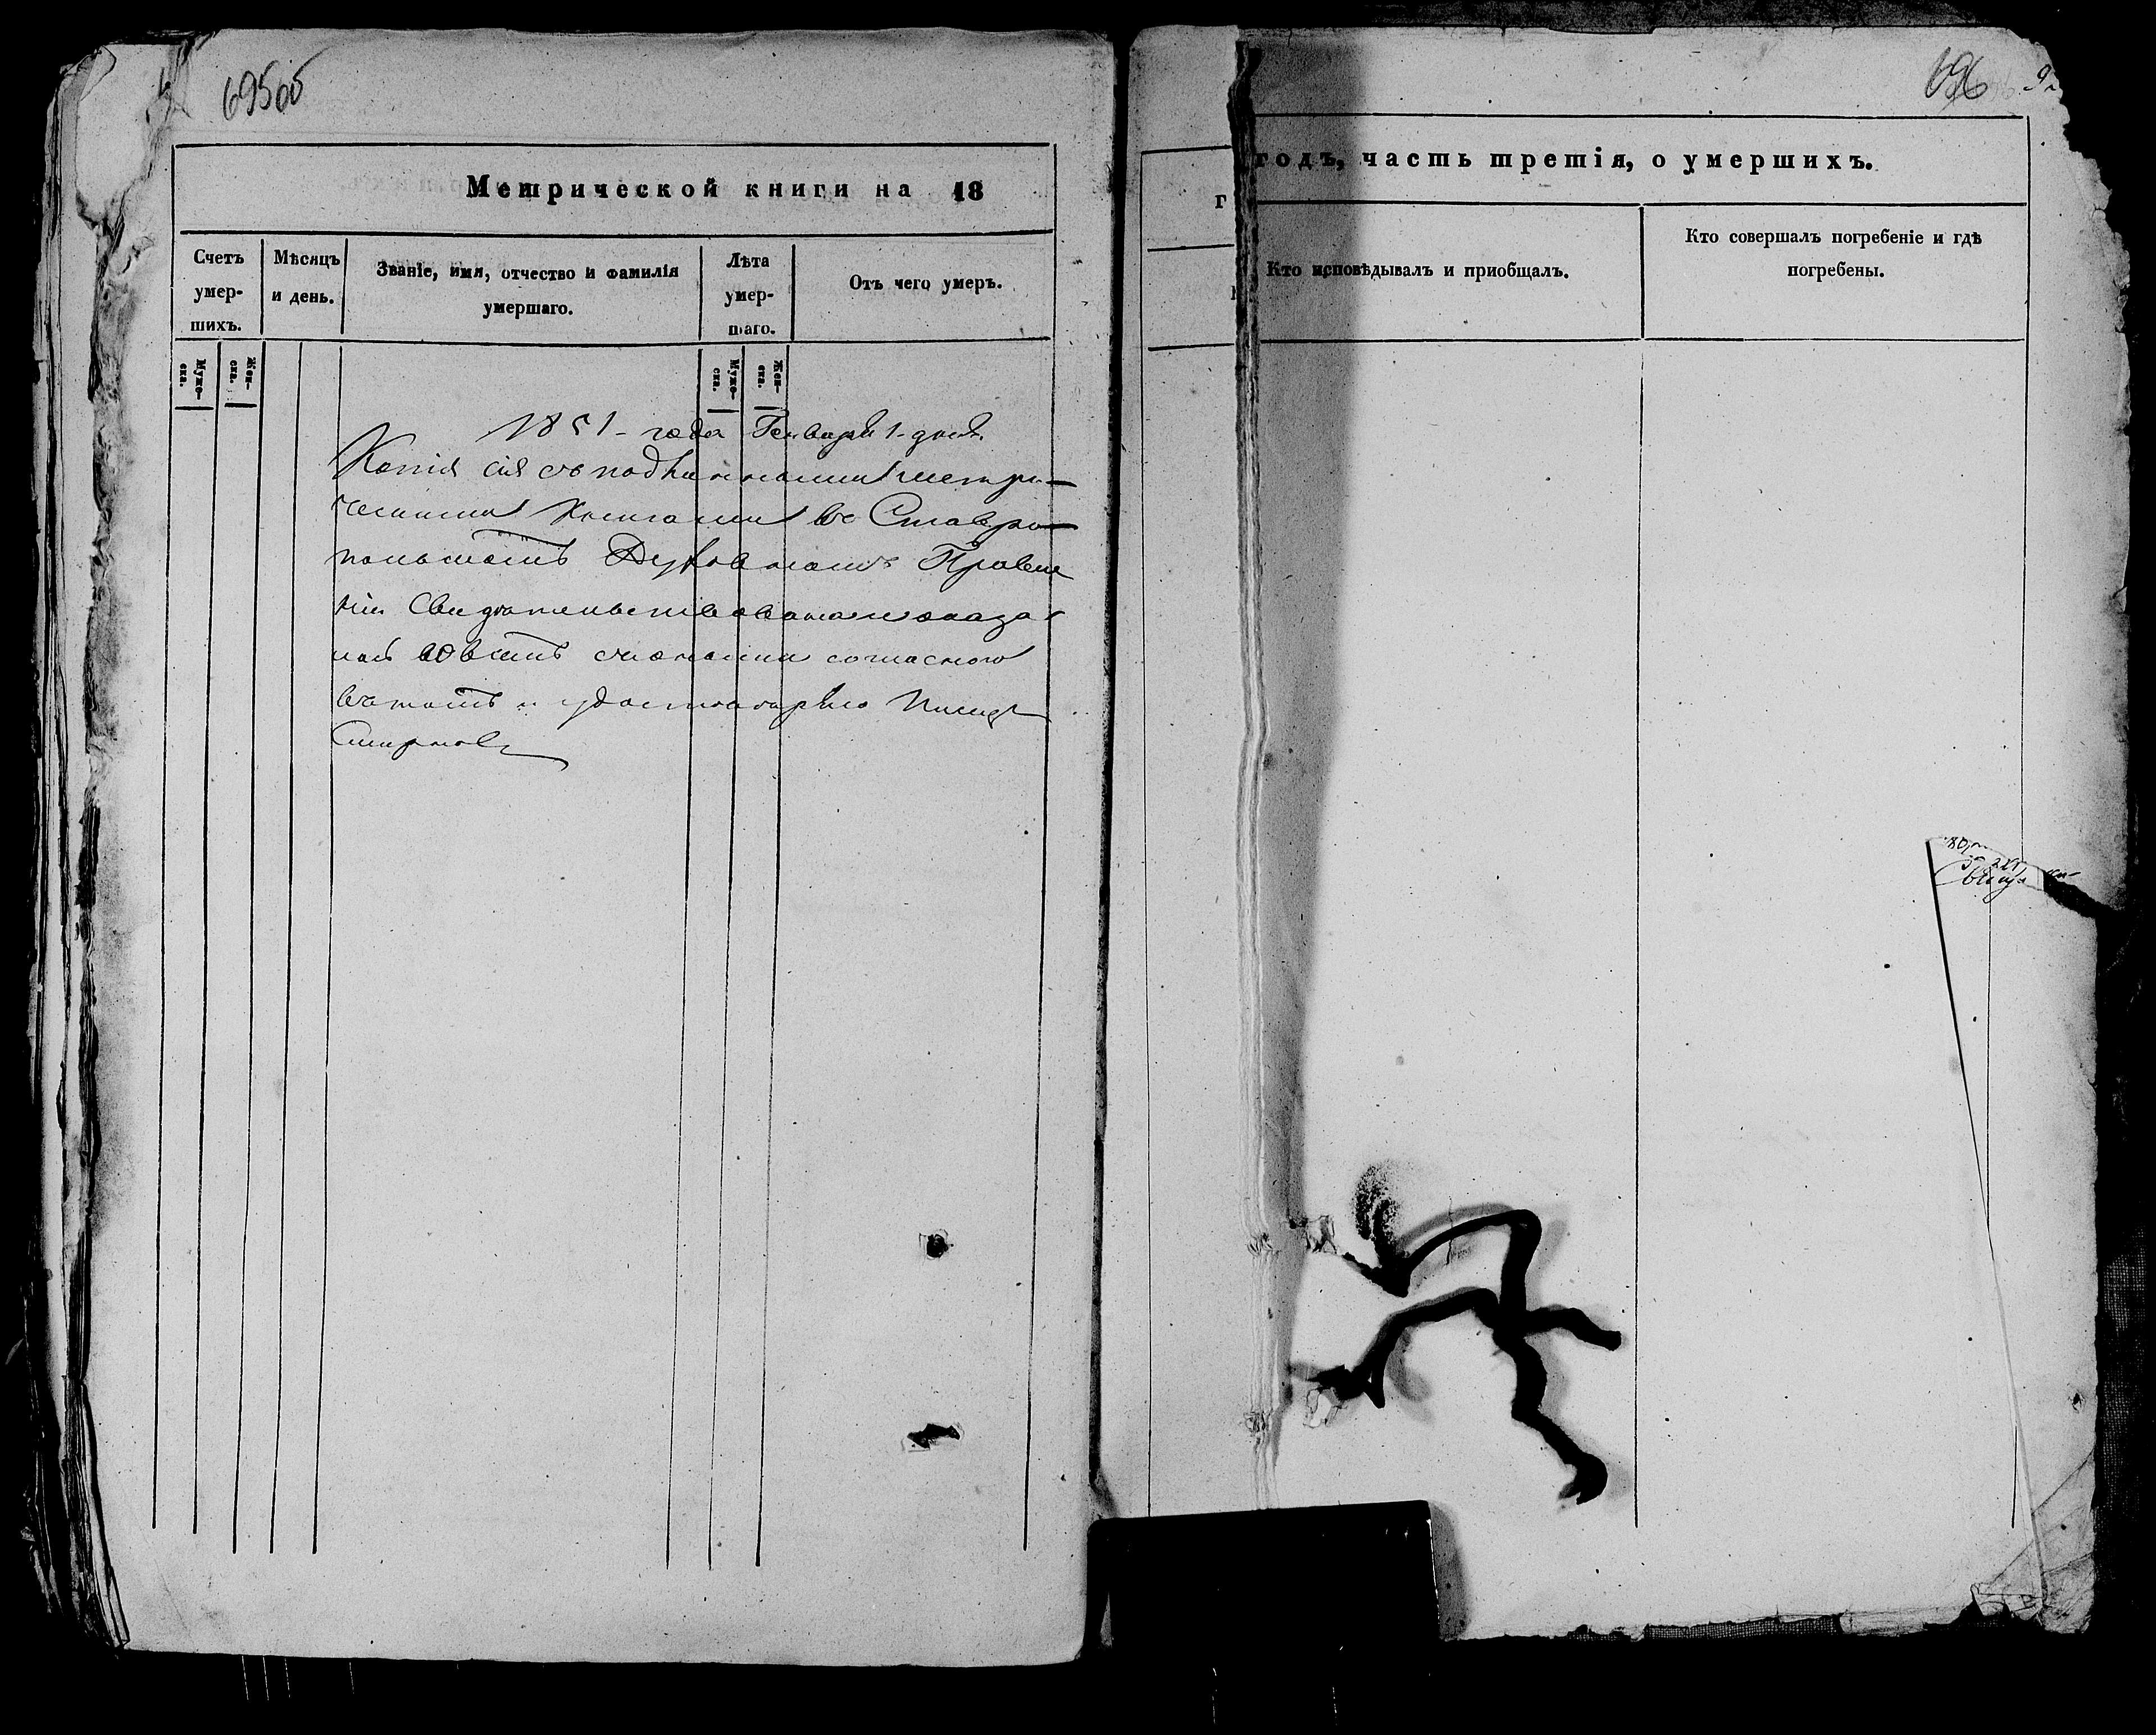 695об
Метрической книги на 18
Счетъ умер- шихъ.
Мѣсяцъ и день.
Званіе, имя, отчество и фамилія умершаго.
Лѣта умер- шаго.
Отъ чего умеръ.
Муже- ска.
Жен- ска.
Муже- ска.
Жен- ска.
1851 – года Генваря 1 – дня.
Копія сія съ подлинными метри-
ческими книгами въ Ставро-
польскомъ Духовномъ Правле
ніи свидѣтельствована и оказа-
лась во всемъ съ оными согласною
въ томъ и удостовѣряю
Смирновъ
696
годъ, часть третія, о умершихъ.
г
Кто исповѣдывалъ и приобщалъ.
Кто совершалъ погребеніе и гдѣ погребены.